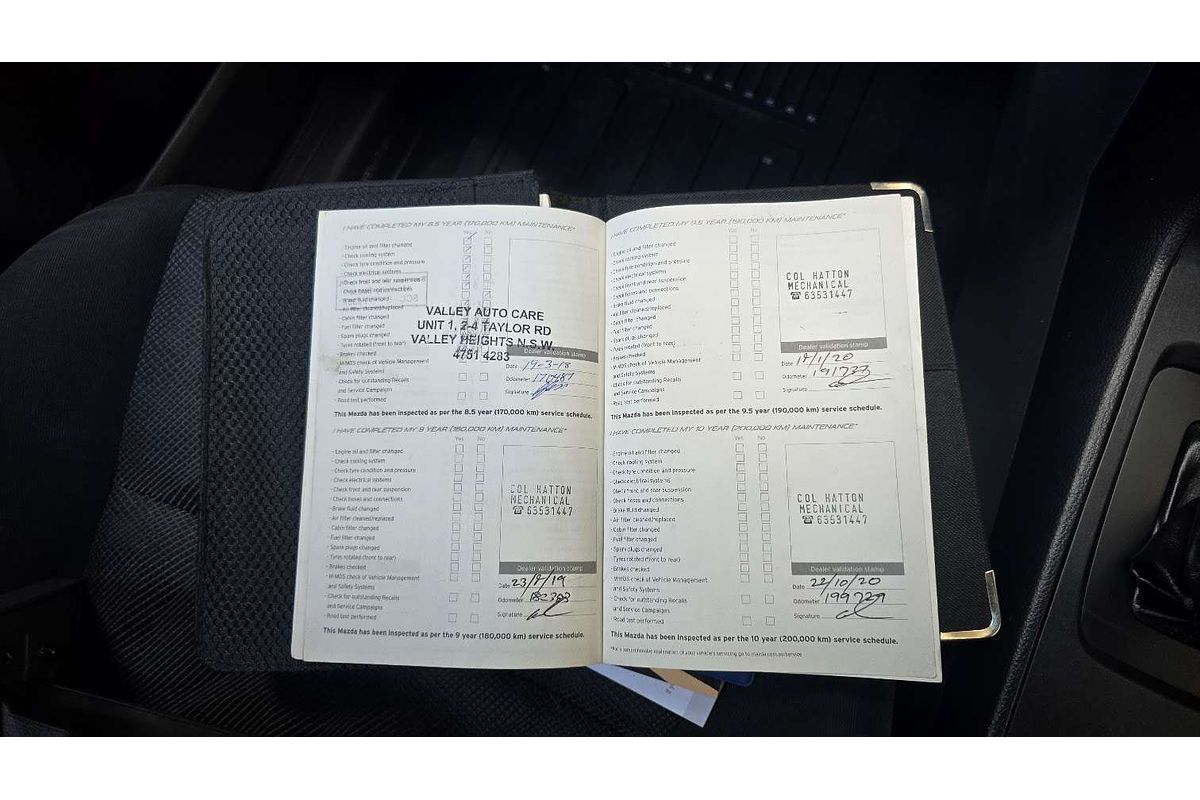 I HAVE COMPLETED MY 8.5 YEAR (170,000 KM) MAINTENANCE*
Yes No
- Engine oil and filter changed
- Check cooling system
- Check tyre condition and pressure
- Check electrical systems
- Check front and rear suspension
- Check hoses and connections
- Brake fluid changed
- Air filter cleaned/replaced
- Cabin filter changed
- Fuel filter changed
- Spark plugs changed
- Tyres rotated (front to rear)
- Brakes checked
- M-MDS check of Vehicle Management
and Safety Systems
- Check for outstanding Recalls
and Service Campaigns
- Road test performed
VALLEY AUTO CARE
UNIT 1, 2-4 TAYLOR RD
VALLEY HEIGHTS N.S.W.
4751 4283
Dealer validation stamp
Date 19-3-18
Odometer
Signature
This Mazda has been inspected as per the 8.5 year (170,000 km) service schedule.
I HAVE COMPLETED MY 9 YEAR (180,000 KM) MAINTENANCE*
Yes No
- Engine oil and filter changed
- Check cooling system
- Check tyre condition and pressure
- Check electrical systems
- Check front and rear suspension
- Check hoses and connections
- Brake fluid changed
- Air filter cleaned/replaced
- Cabin filter changed
- Fuel filter changed
- Spark plugs changed
- Tyres rotated (front to rear)
- Brakes checked
- M-MDS check of Vehicle Management
and Safety Systems
- Check for outstanding Recalls
and Service Campaigns
- Road test performed
COL HATTON
MECHANICAL
☎ 63531447
Dealer validation stamp
Date
Odometer
Signature
This Mazda has been inspected as per the 9 year (180,000 km) service schedule.
I HAVE COMPLETED MY 9.5 YEAR (190,000 KM) MAINTENANCE*
Yes No
- Engine oil and filter changed
- Check cooling system
- Check tyre condition and pressure
- Check electrical systems
- Check front and rear suspension
- Check hoses and connections
- Brake fluid changed
- Air filter cleaned/replaced
- Cabin filter changed
- Fuel filter changed
- Spark plugs changed
- Tyres rotated (front to rear)
- Brakes checked
- M-MDS check of Vehicle Management
and Safety Systems
- Check for outstanding Recalls
and Service Campaigns
- Road test performed
COL HATTON
MECHANICAL
☎ 63531447
Dealer validation stamp
Date
Odometer 191723
Signature
This Mazda has been inspected as per the 9.5 year (190,000 km) service schedule.
I HAVE COMPLETED MY 10 YEAR (200,000 KM) MAINTENANCE*
Yes No
- Engine oil and filter changed
- Check cooling system
- Check tyre condition and pressure
- Check electrical systems
- Check front and rear suspension
- Check hoses and connections
- Brake fluid changed
- Air filter cleaned/replaced
- Cabin filter changed
- Fuel filter changed
- Spark plugs changed
- Tyres rotated (front to rear)
- Brakes checked
- M-MDS check of Vehicle Management
and Safety Systems
- Check for outstanding Recalls
and Service Campaigns
- Road test performed
COL HATTON
MECHANICAL
☎ 63531447
Dealer validation stamp
Date 22/10/20
Odometer 199729
Signature
This Mazda has been inspected as per the 10 year (200,000 km) service schedule.